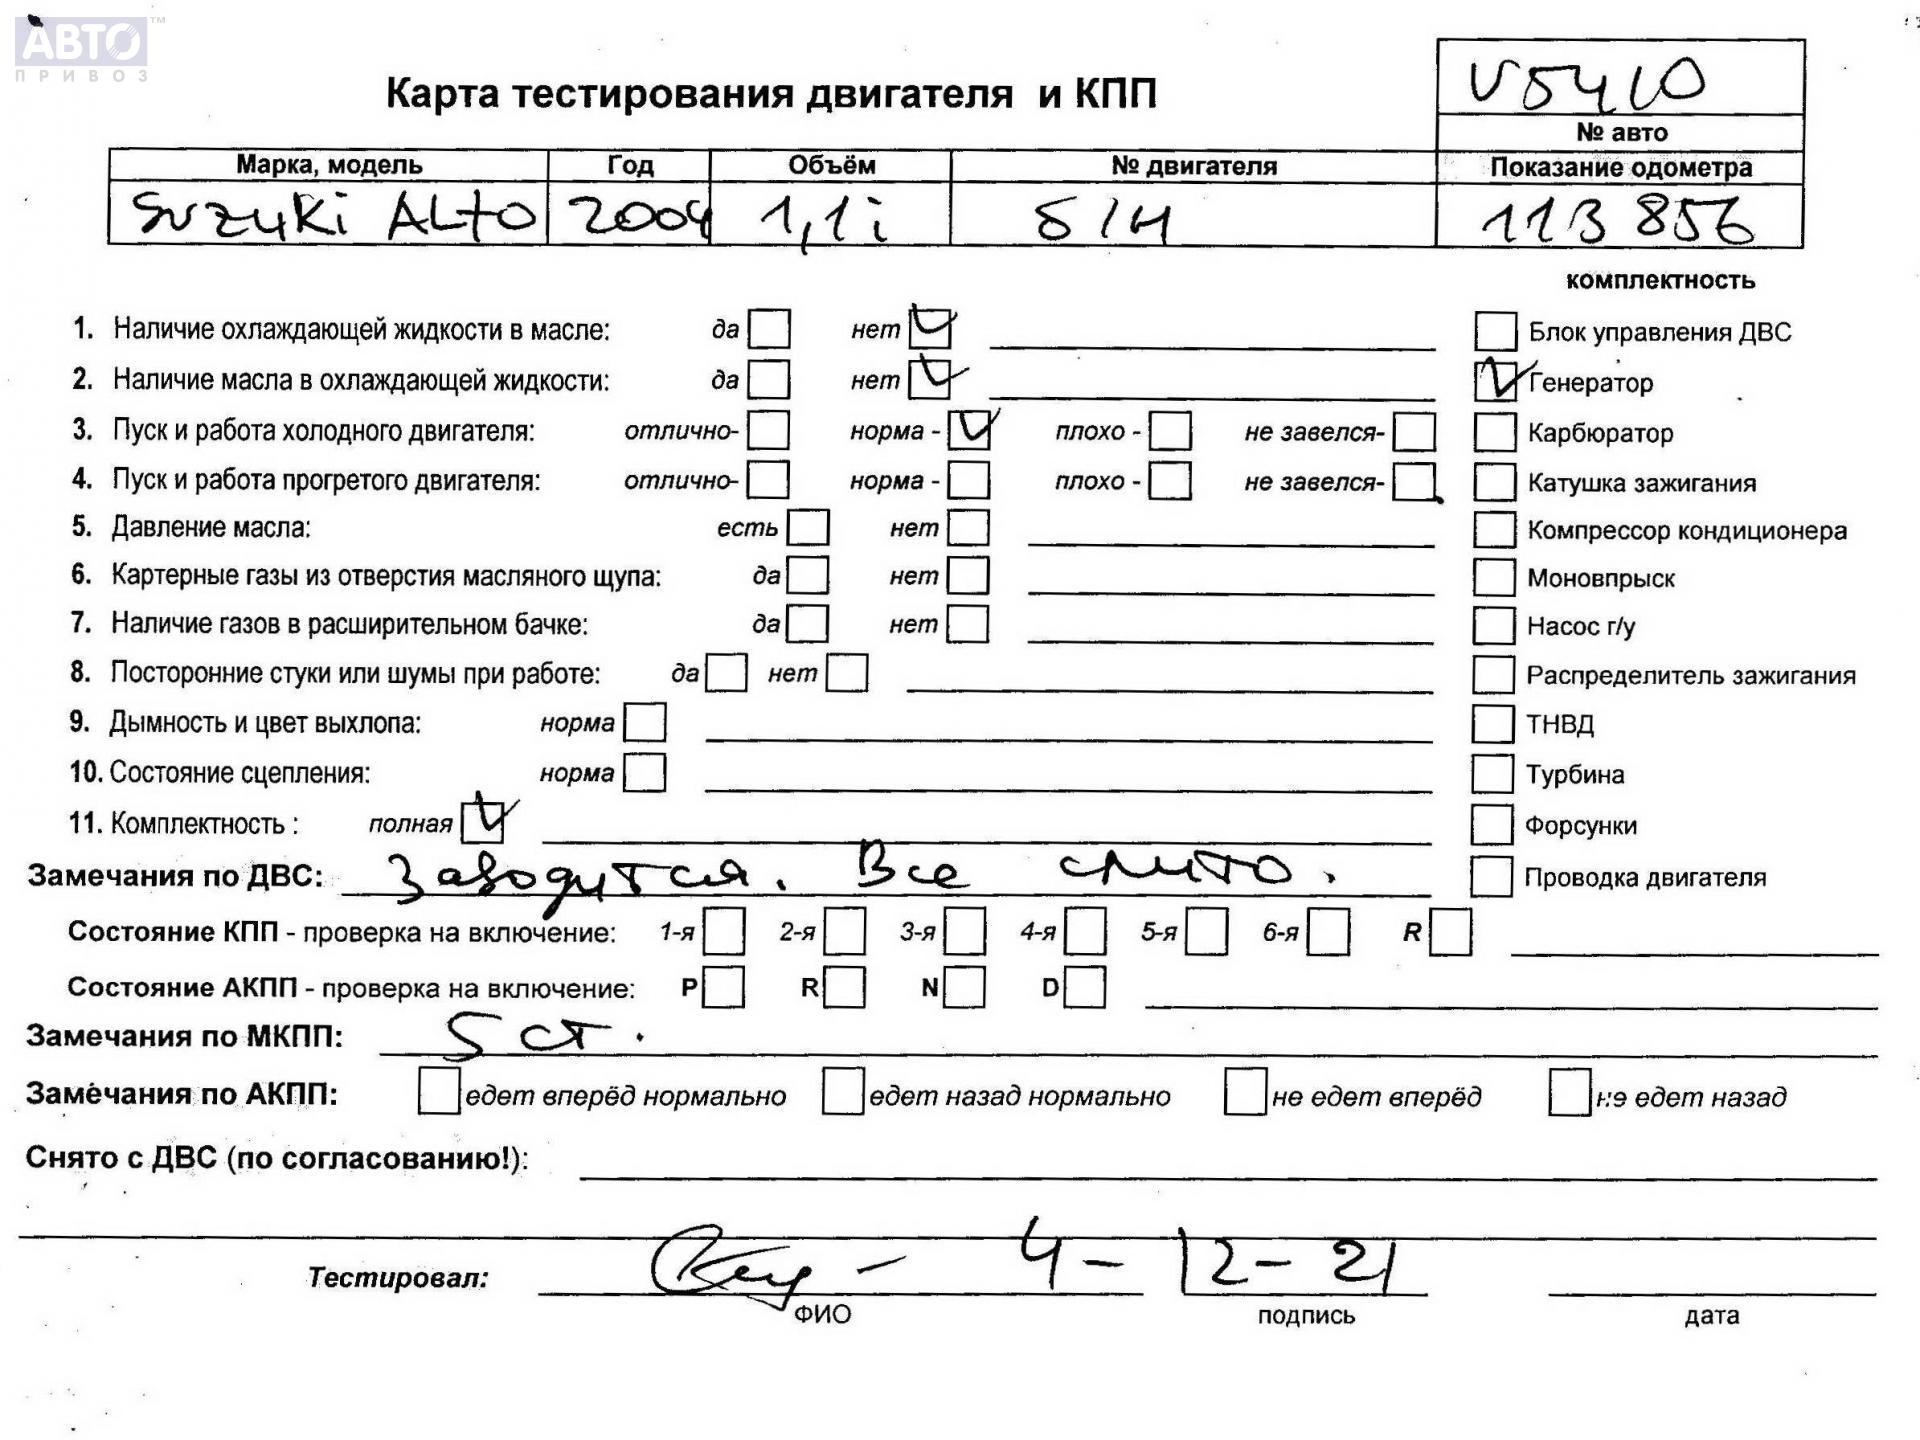 АВТО™
ПРИВОЗ
Карта тестирования двигателя и КПП
V5410
№ авто
Марка, модель Год Объём № двигателя Показание одометра
Suzuki ALto 2004 1,1i б/н 113 856
комплектность
1. Наличие охлаждающей жидкости в масле: да нет Блок управления ДВС
2. Наличие масла в охлаждающей жидкости: да нет Генератор
3. Пуск и работа холодного двигателя: отлично- норма - плохо - не завелся- Карбюратор
4. Пуск и работа прогретого двигателя: отлично- норма - плохо - не завелся- Катушка зажигания
5. Давление масла: есть нет Компрессор кондиционера
6. Картерные газы из отверстия масляного щупа: да нет Моновпрыск
7. Наличие газов в расширительном бачке: да нет Насос г/у
8. Посторонние стуки или шумы при работе: да нет Распределитель зажигания
9. Дымность и цвет выхлопа: норма ТНВД
10. Состояние сцепления: норма Турбина
11. Комплектность : полная Форсунки
Замечания по ДВС: Заводится. Все слито. Проводка двигателя
Состояние КПП - проверка на включение: 1-я 2-я 3-я 4-я 5-я 6-я R
Состояние АКПП - проверка на включение: P R N D
Замечания по МКПП: 5 ст.
Замечания по АКПП: едет вперёд нормально едет назад нормально не едет вперёд не едет назад
Снято с ДВС (по согласованию!):
Тестировал: 4-12-21
ФИО подпись дата